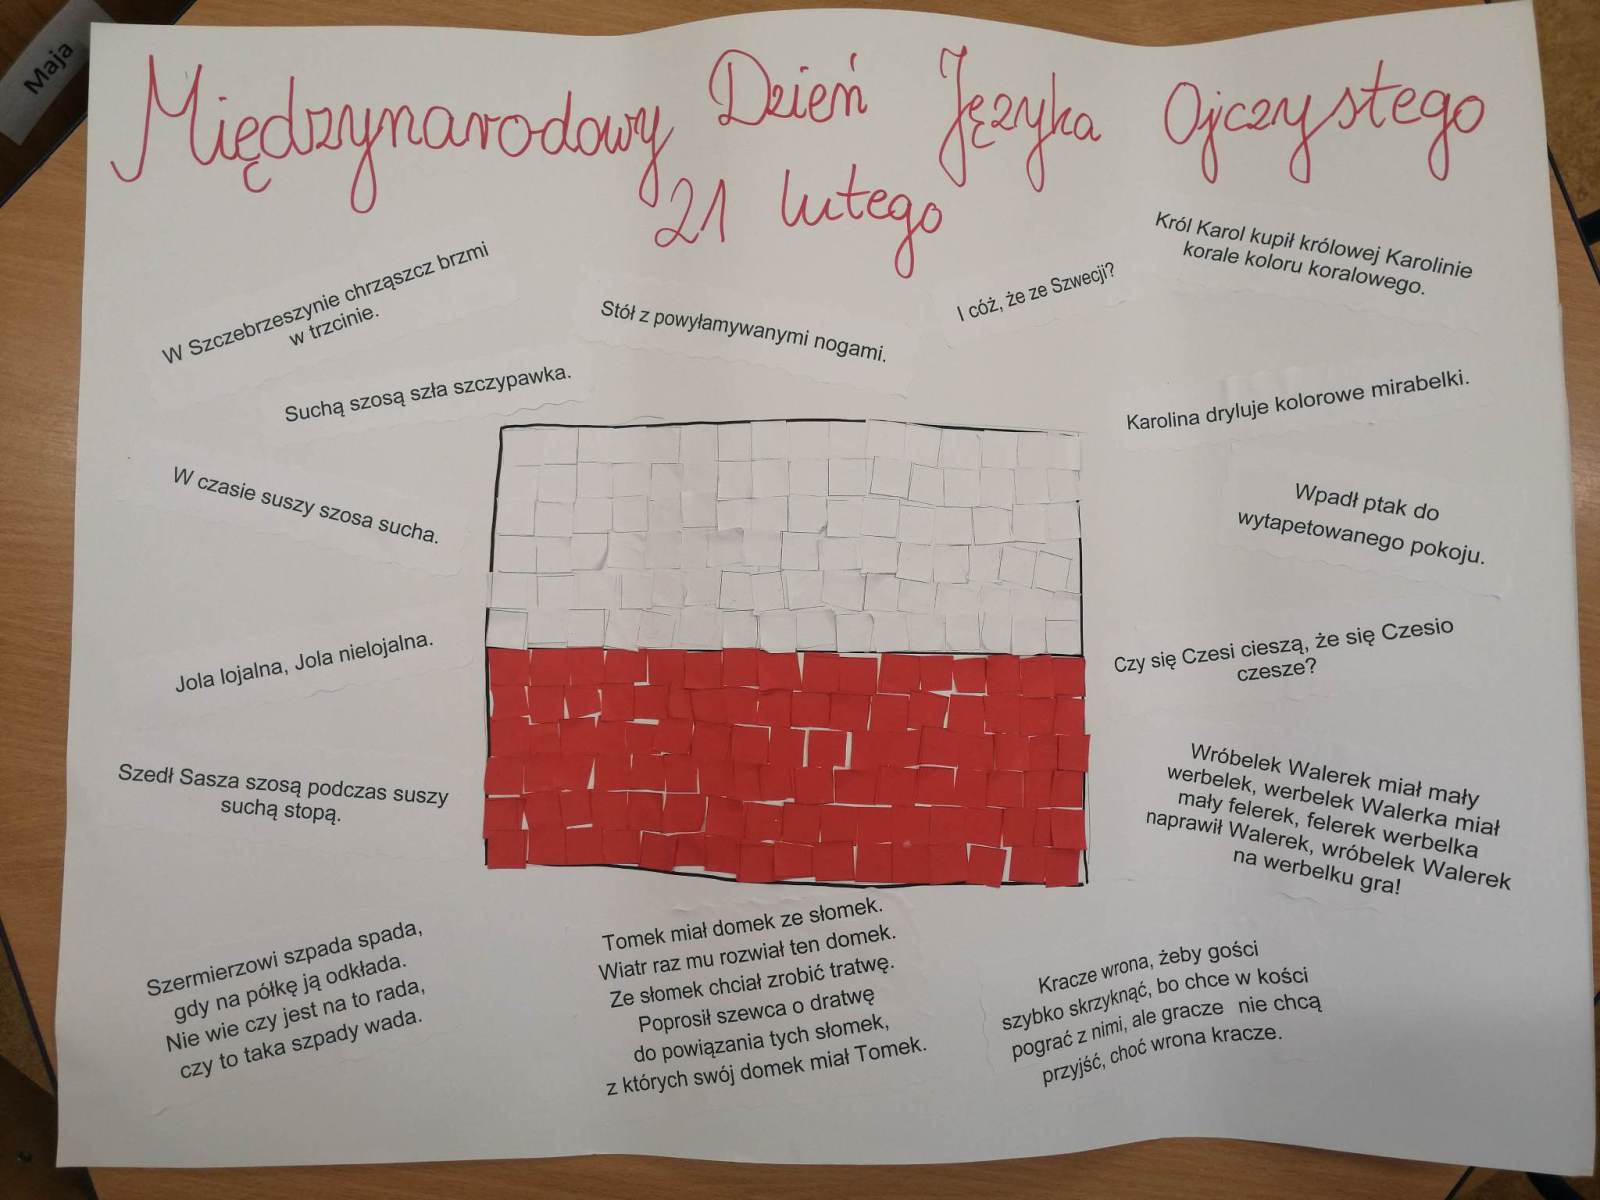 Maja
Międzynarodowy Dzień Języka Ojczystego
21 lutego
W Szczebrzeszynie chrząszcz brzmi
w trzcinie.
Suchą szosą szła szczypawka.
Stół z powyłamywanymi nogami.
I cóż, że ze Szwecji?
Król Karol kupił królowej Karolinie
korale koloru koralowego.
Karolina dryluje kolorowe mirabelki.
W czasie suszy szosa sucha.
Wpadł ptak do
wytapetowanego pokoju.
Jola lojalna, Jola nielojalna.
Czy się Czesi cieszą, że się Czesio
czesze?
Szedł Sasza szosą podczas suszy
suchą stopą.
Wróbelek Walerek miał mały
werbelek, werbelek Walerka miał
mały felerek, felerek werbelka
naprawił Walerek, wróbelek Walerek
na werbelku gra!
Szermierzowi szpada spada,
gdy na półkę ją odkłada.
Nie wie czy jest na to rada,
czy to taka szpady wada.
Tomek miał domek ze słomek.
Wiatr raz mu rozwiał ten domek.
Ze słomek chciał zrobić tratwę.
Poprosił szewca o dratwę
do powiązania tych słomek,
z których swój domek miał Tomek.
Kracze wrona, żeby gości
szybko skrzyknąć, bo chce w kości
pograć z nimi, ale gracze nie chcą
przyjść, choć wrona kracze.